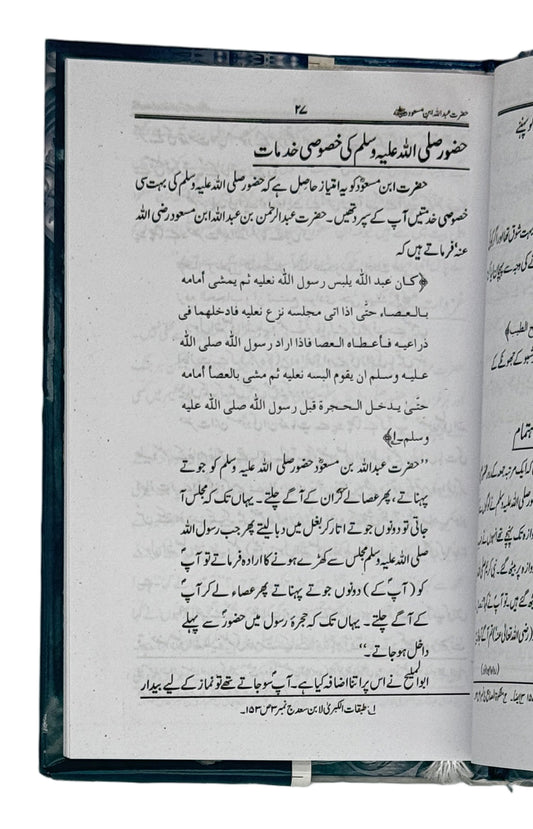 حضرت عبداللہ ابن مسعودؓ ۲۷
حضور صلی اللہ علیہ وسلم کی خصوصی خدمات
حضرت ابن مسعودؓ کو یہ امتیاز حاصل ہے کہ حضور صلی اللہ علیہ وسلم کی بہت سی
خصوصی خدمتیں آپ کے سپرد تھیں۔ حضرت عبدالرحمٰن بن عبداللہ ابن مسعود رضی اللہ
عنہٗ فرماتے ہیں کہ
﴿کان عبد الله یلبس رسول الله نعلیه ثم یمشی أمامه
بالعصاء حتّٰی اذا اتی مجلسه نزع نعلیه فادخلهما فی
ذراعیه فأعطاه العصا فاذا اراد رسول الله صلی الله
علیه وسلم ان یقوم البسه نعلیه ثم مشی بالعصأ أمامه
حتّٰی یدخل الحجرة قبل رسول الله صلی الله علیه
وسلم۔۱﴾
’’حضرت عبداللہ بن مسعودؓ حضور صلی اللہ علیہ وسلم کو جوتے
پہناتے، پھر عصا لے کر اُن کے آگے چلتے۔ یہاں تک کہ مجلس آ
جاتی تو دونوں جوتے اتار کر بغل میں دبا لیتے پھر جب رسول اللہ
صلی اللہ علیہ وسلم مجلس سے کھڑے ہونے کا ارادہ فرماتے تو آپؐ
کو (آپؐ کے) دونوں جوتے پہناتے پھر عصاء لے کر آپؐ
کے آگے چلتے۔ یہاں تک کہ حجرۂ رسول میں حضورؐ سے پہلے
داخل ہو جاتے۔‘‘
ابو الملیح نے اس پر اتنا اضافہ کیا ہے۔ آپؐ سو جاتے تھے تو نماز کے لیے بیدار
۱؎ طبقات الکبریٰ لابن سعد ج نمبر ۳ ص ۱۵۳۔